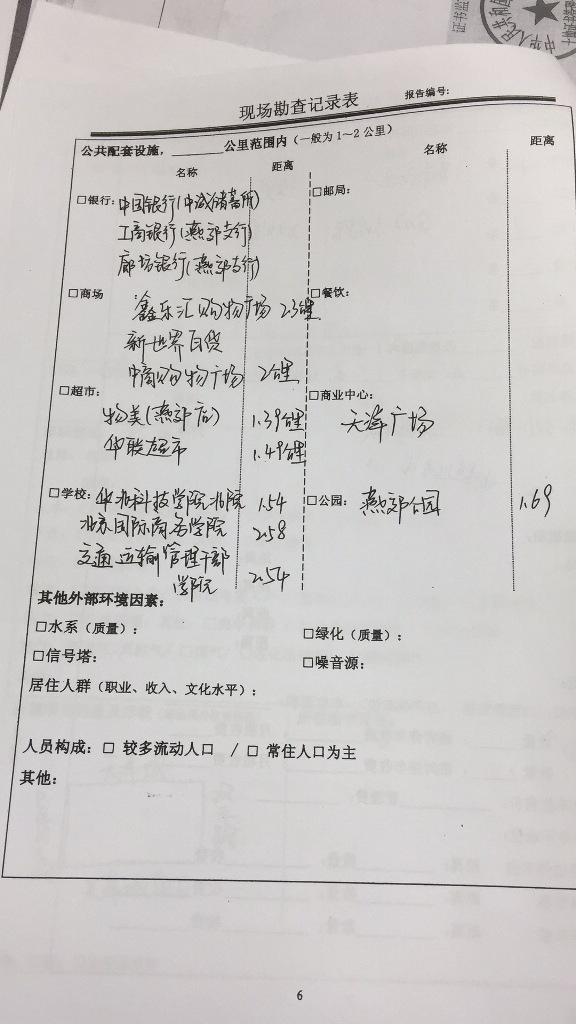 现场勘查记录表
报告编号:
公共配套设施，______公里范围内（一般为1～2公里）
名称 距离 名称 距离
□银行: 中国银行(中诚储蓄所) □邮局:
工商银行(燕郊支行)
廊坊银行(燕郊支行)
□商场 鑫乐汇购物广场 2.3公里 □餐饮:
新世界百货
中商购物广场 2公里
□超市: □商业中心:
物美(燕郊店) 1.39公里 天洋广场
华联超市 1.49公里
□学校: 华北科技学院北院 1.54 □公园: 燕郊公园 1.69
北京国际商务学院 2.58
交通运输管理干部
学院 2.54
其他外部环境因素:
□水系（质量）: □绿化（质量）:
□信号塔: □噪音源:
居住人群（职业、收入、文化水平）;
人员构成: □ 较多流动人口 / □ 常住人口为主
其他:
6